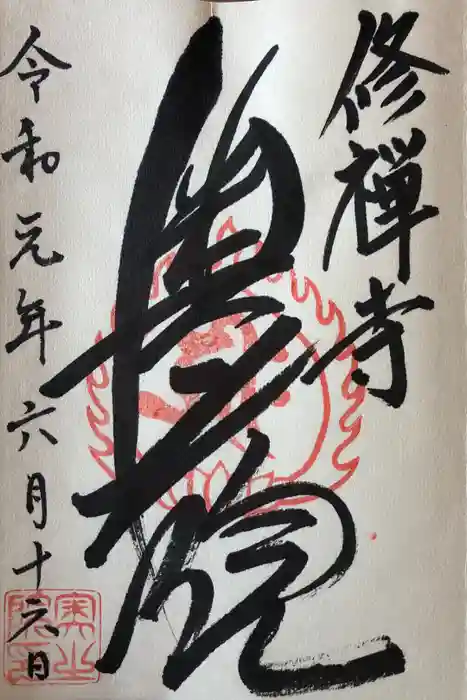 修禅寺
奥之院
令和元年六月十六日
奥之
院印